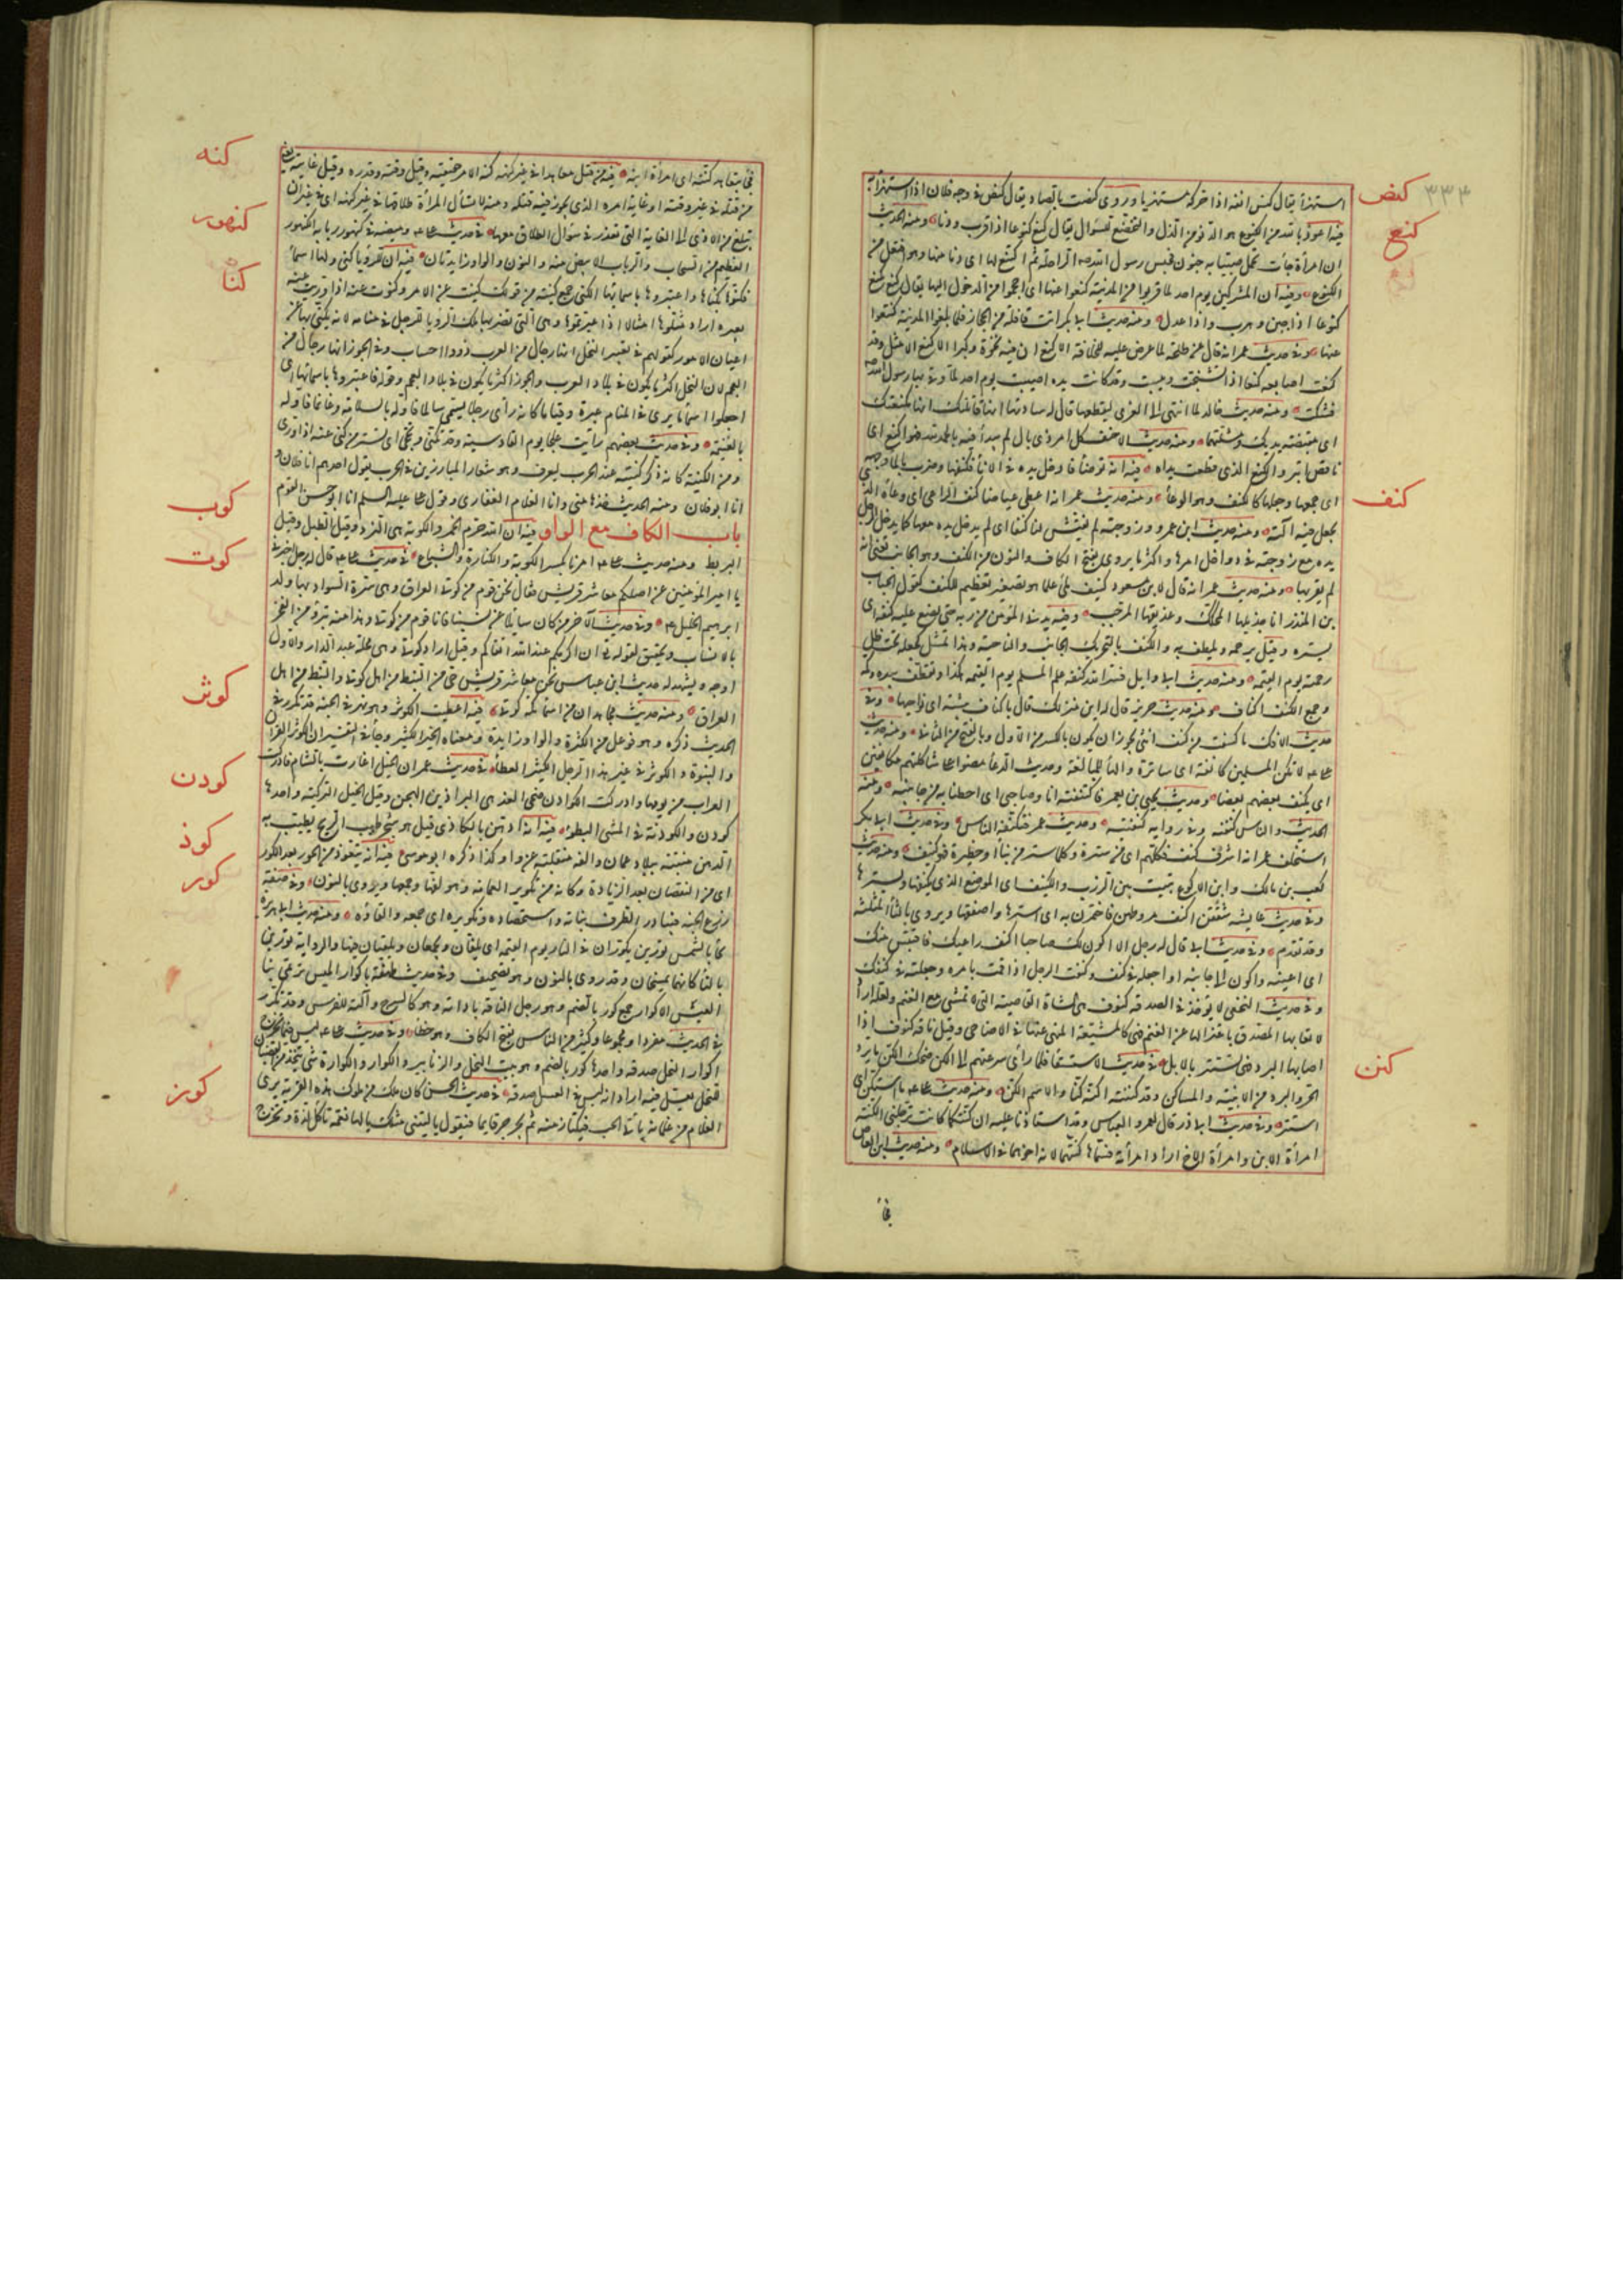 ٣٣٣
كنص
استهزأ يقال كنص انفه اذا حركه مستهزيا ويروى كنصت بالصاد يقال كنص في وجه فلان اذا استهزأ به
كنع
فيه اعوذ بالله من الكنوع هو الدنو من الذل والتخضع للسوال يقال كنع كنوعا اذا قرب ودنا ومنه الحديث
ان امرأة جأت تحمل صبيا به جنون فحبس رسول الله الراحلة ثم اكتنع لها اى دنا منها وهو افتعل من
الكنوع وفيه ان المشركين يوم احد لما قربوا من المدينة كنعوا عنها اى احجموا من الدخول اليها يقال كنع يكنع
كنوعا اذا جبن وهرب واذا عدل ومنه حديث ابى بكر اتت قافلة من الحجاز فلما بلغوا المدينة كنعوا
عنها وفي حديث عمر انه قال عن طلحة لما عرض عليه للخلافة الاكنع ان فيه نخوة وكبرا الاكنع الاشل وقد
كنعت اصابعه كنعا اذا تشنجت ويبست وقد كانت يده اصيبت يوم احد لما وقى بها رسول الله
فشلت ومنه حديث خالد لما انتهى الى العزى ليقطعها قال له سادنها انها قاتلتك انها مكنعتك
اى مقبضة يديك ومشلتهما ومنه حديث الاحنف كل امر ذى بال لم يبدأ فيه بالحمد لله فهو اكنع اى
ناقص ابتر والكنع الذى قطعت يداه
كنف
فيه انه توضأ فادخل يده في الانأ فكنفها وضرب بالمأ وجهه
اى جمعها وجعلها كالكنف وهو الوعأ ومنه حديث عمر انه اعطى عياضا كنف الراعى اى وعأه الذى
يجعل فيه آلته ومنه حديث ابن عمرو وزوجته لم يفتش لنا كنفا اى لم يدخل يده معها كما يدخل الرجل
يده مع زوجته في دواخل امرها واكثر ما يروى بفتح الكاف والنون من الكنف وهو الجانب تعنى انه
لم يقربها ومنه حديث عمر انه قال لابن مسعود كنيف ملئ علما هو تصغير تعظيم للكنف كقول الحباب
بن المنذر انا جذيلها المحكك وعذيقها المرجب وفيه يدنى المؤمن من ربه حتى يضع عليه كنفه اى
يستره وقيل يرحمه ويلطف به والكنف بالتحريك الجانب والناحية وهذا تمثيل لجعله تحت ظل
رحمته يوم القيمة ومنه حديث ابى وايل نشر الله كنفه على المسلم يوم القيمة هكذا وتعطف بيده وكمه
وجمع الكنف اكناف ومنه حديث جرير قال له اين منزلك قال باكناف بيشة اى نواحيها وفي
حديث الافك ما كشفت من كنف انثى يجوز ان يكون بالكسر من الاول وبالفتح من الثانى ومنه حديث
لا تكن للمسلمين كانفة اى ساترة والهأ للمبالغة وحديث الدعأ مضوا على شاكلتهم مكانفين
اى يكنف بعضهم بعضا وحديث يحيى بن يعمر فاكتنفته انا وصاحبى اى احطنا به من جانبيه ومنه
الحديث والناس كنفيه وفي رواية كنفتيه وحديث عمر فتكنفه الناس وفي حديث ابى بكر
استخلف عمر انه اشرف من كنيف فكلمهم اى من سترة وكل ما ستر من بنأ او حظيرة فهو كنيف ومنه حديث
كعب بن مالك وابن الاكوع تبيت بين الزرب والكنيف اى الموضع الذى يكنفها ويسترها
وفي حديث عايشه شققن اكنف مروطهن فاختمرن به اى استرها واصفقها ويروى بالثأ المثلثة
وقد تقدم وفي حديث ابى قال له رجل الا اكون لك صاحبا اكنف راعيك فاقتبس منك
اى اعينه واكون الى جانبه او اجعله في كنف وكنفت الرجل اذا قمت بامره وجعلته في كنفك
وفي حديث النخعى لا يوخذ في الصدقه كنوف هى الشاة القاصية التى لا تمشى مع الغنم ولعله اراد
لا تعابها المصدق باعتزالها عن الغنم فهى كالمشيعة المنهى عنها في الاضاحى وقيل ناقة كنوف اذا
اصابها البرد فهى تستتر بالابل
كنن
في حديث الاستسقا فلما رأى سرعتهم الى الكن ضحك الكن ما يرد
الحر والبرد من الابنية والمساكن وقد كننته اكنه كنا والاسم الكن ومنه حديث على ما استكن اى
استتر وفي حديث ابى ذر قال لعمر والعباس وقد استاذنا عليه ان كنتكما كانت ترجلنى الكنة
امرأة الابن وامرأة الاخ اراد امرأته فسماها كنتهما لانه اخوهما في الاسلام ومنه حديث ابن العاص
فجأ
فجأ يتعاهد كنته اى امرأة ابنه
كنه
فيه من قتل معاهدا في غير كنهه كنه الامر حقيقته وقيل وقته وقدره وقيل غايته يعنى
من قتله في غير وقته او غاية امره الذى يجوز فيه قتله ومنه لا تسأل المرأة طلاقها في غير كنهه اى في غير ان
تبلغ من الاذى الى الغاية التى تعذر في سؤال الطلاق معها
كنهور
في حديث على وميضه في كنهور ربابه الكنهور
العظيم من السحاب والرباب الابيض منه والنون والواو زايدتان
كنا
فيه ان للرؤيا كنى ولها اسمأ
فكنوها بكناها واعتبروها باسمائها الكنى جمع كنية من قولك كنيت عن الامر وكنوت عنه اذا وريت عنه
بغيره اراد مثلوها مثالا اذا عبرتموها وهى التى يضربها ملك الرؤيا للرجل في منامه لانه يكنى بها عن
اعيان الامور كقولهم في تعبير النخل انها رجال من العرب ذووا احساب وفي الجوز انها رجال من
العجم لان النخل اكثر ما يكون في بلاد العرب والجوز اكثر ما يكون في بلاد العجم وقوله فاعتبروها باسمائها اى
اجعلوا اسمأ ما يرى في المنام عبرة وقياسا كانه رأى رجلا يسمى سالما فاوله بالسلامة وغانما فاوله
بالغنيمة وفي حديث بعضهم رأيت علجا يوم القادسية وقد تكنى وتحجى اى تستر من كنى عنه اذا ورى
ومن الكنية كانه ذكر كنيته عند الحرب ليعرف وهو شعار المبارزين في الحرب يقول احدهم انا فلان و
انا ابو فلان ومنه الحديث خذها منى وانا الغلام الغفارى وقول على عليه السلم انا ابو حسن القوم
باب الكاف مع الواو
كوب
فيه ان الله حرم الخمر والكوبة هى النرد وقيل الطبل وقيل
البربط ومنه حديث على امرنا بكسر الكوبة والكنارة والشياع
كوت
في حديث على قال له رجل اخبرنى
يا امير المؤمنين عن اصلكم معاشر قريش فقال نحن قوم من كوثى العراق وهى سرة السواد بها ولد
ابرهيم الخليل وفي حديث الآخر من كان سائلا عن نسبنا فانا قوم من كوثى وهذا منه تبرؤ من الفخر
بالانساب وتحقيق لقوله ان اكرمكم عند الله اتقاكم وقيل اراد كوثى وهى محلة عبد الدار والاول
اوجه ويشهد له حديث ابن عباس نحن معاشر قريش حى من النبط من اهل كوثى والنبط من اهل
العراق ومنه حديث مجاهد ان من اسمأ مكة كوثى
كوثر
فيه اعطيت الكوثر وهو نهر في الجنة قد تكرر في
الحديث ذكره وهو فوعل من الكثرة والواو زايدة ومعناه الخير الكثير وجأ في التفسير ان الكوثر القرآن
والنبوة والكوثر في غير هذا الرجل الكثير العطأ
كودن
في حديث عمر ان الخيل اغارت بالشام فادركت
العراب من يومها وادركت الكوادن ضحى الغد هى البراذين الهجن وقيل الخيل التركية واحدها
كودن والكودنة في المشى البطؤ
كوذ
فيه انه ادهن بالكاذى قيل هو شجر طيب الريح يطيب به
الدهن منبته ببلاد عمان والفه منقلبة عن واو كذا ذكره ابو موسى
كور
فيه انه يتعوذ من الحور بعد الكور
اى من النقصان بعد الزيادة وكانه من تكوير العمامة وهو لفها وجمعها ويروى بالنون وفي صفة
زرع الجنة فيبادر الطرف نباته واستحصاده وتكويره اى جمعه والقاؤه ومنه حديث ابى هريرة
يجأ بالشمس ثورين يكوران في النار يوم القيمة اى يلفان ويجمعان ويلقيان فيها والرواية ثورين
بالثأ كانهما يمسخان وقد روى بالنون وهو تصحيف وفي حديث طهفة باكوار الميس ترتمى بنا
العيس الاكوار جمع كور بالضم وهو رحل الناقة باداته وهو كالسرج وآلته للفرس وقد تكرر
في الحديث مفردا ومجموعا وكثير من الناس يفتح الكاف وهو خطأ وفي حديث على ليس فيما تخرج
اكوار النحل صدقه واحدها كور بالضم وهو بيت النحل والزنابير والكوار والكوارة شئ يتخذ من القضبان
للنحل يعسل فيه اراد انه ليس في العسل صدقة
كوز
في حديث الحسن كان ملك من ملوك هذه القرية يرى
الغلام من غلمانه ياتى الحب فيكتاز منه ثم يجرجر قايما فيقول يا ليتنى مثلك يا لها نعمة تأكل لذة وتخرج